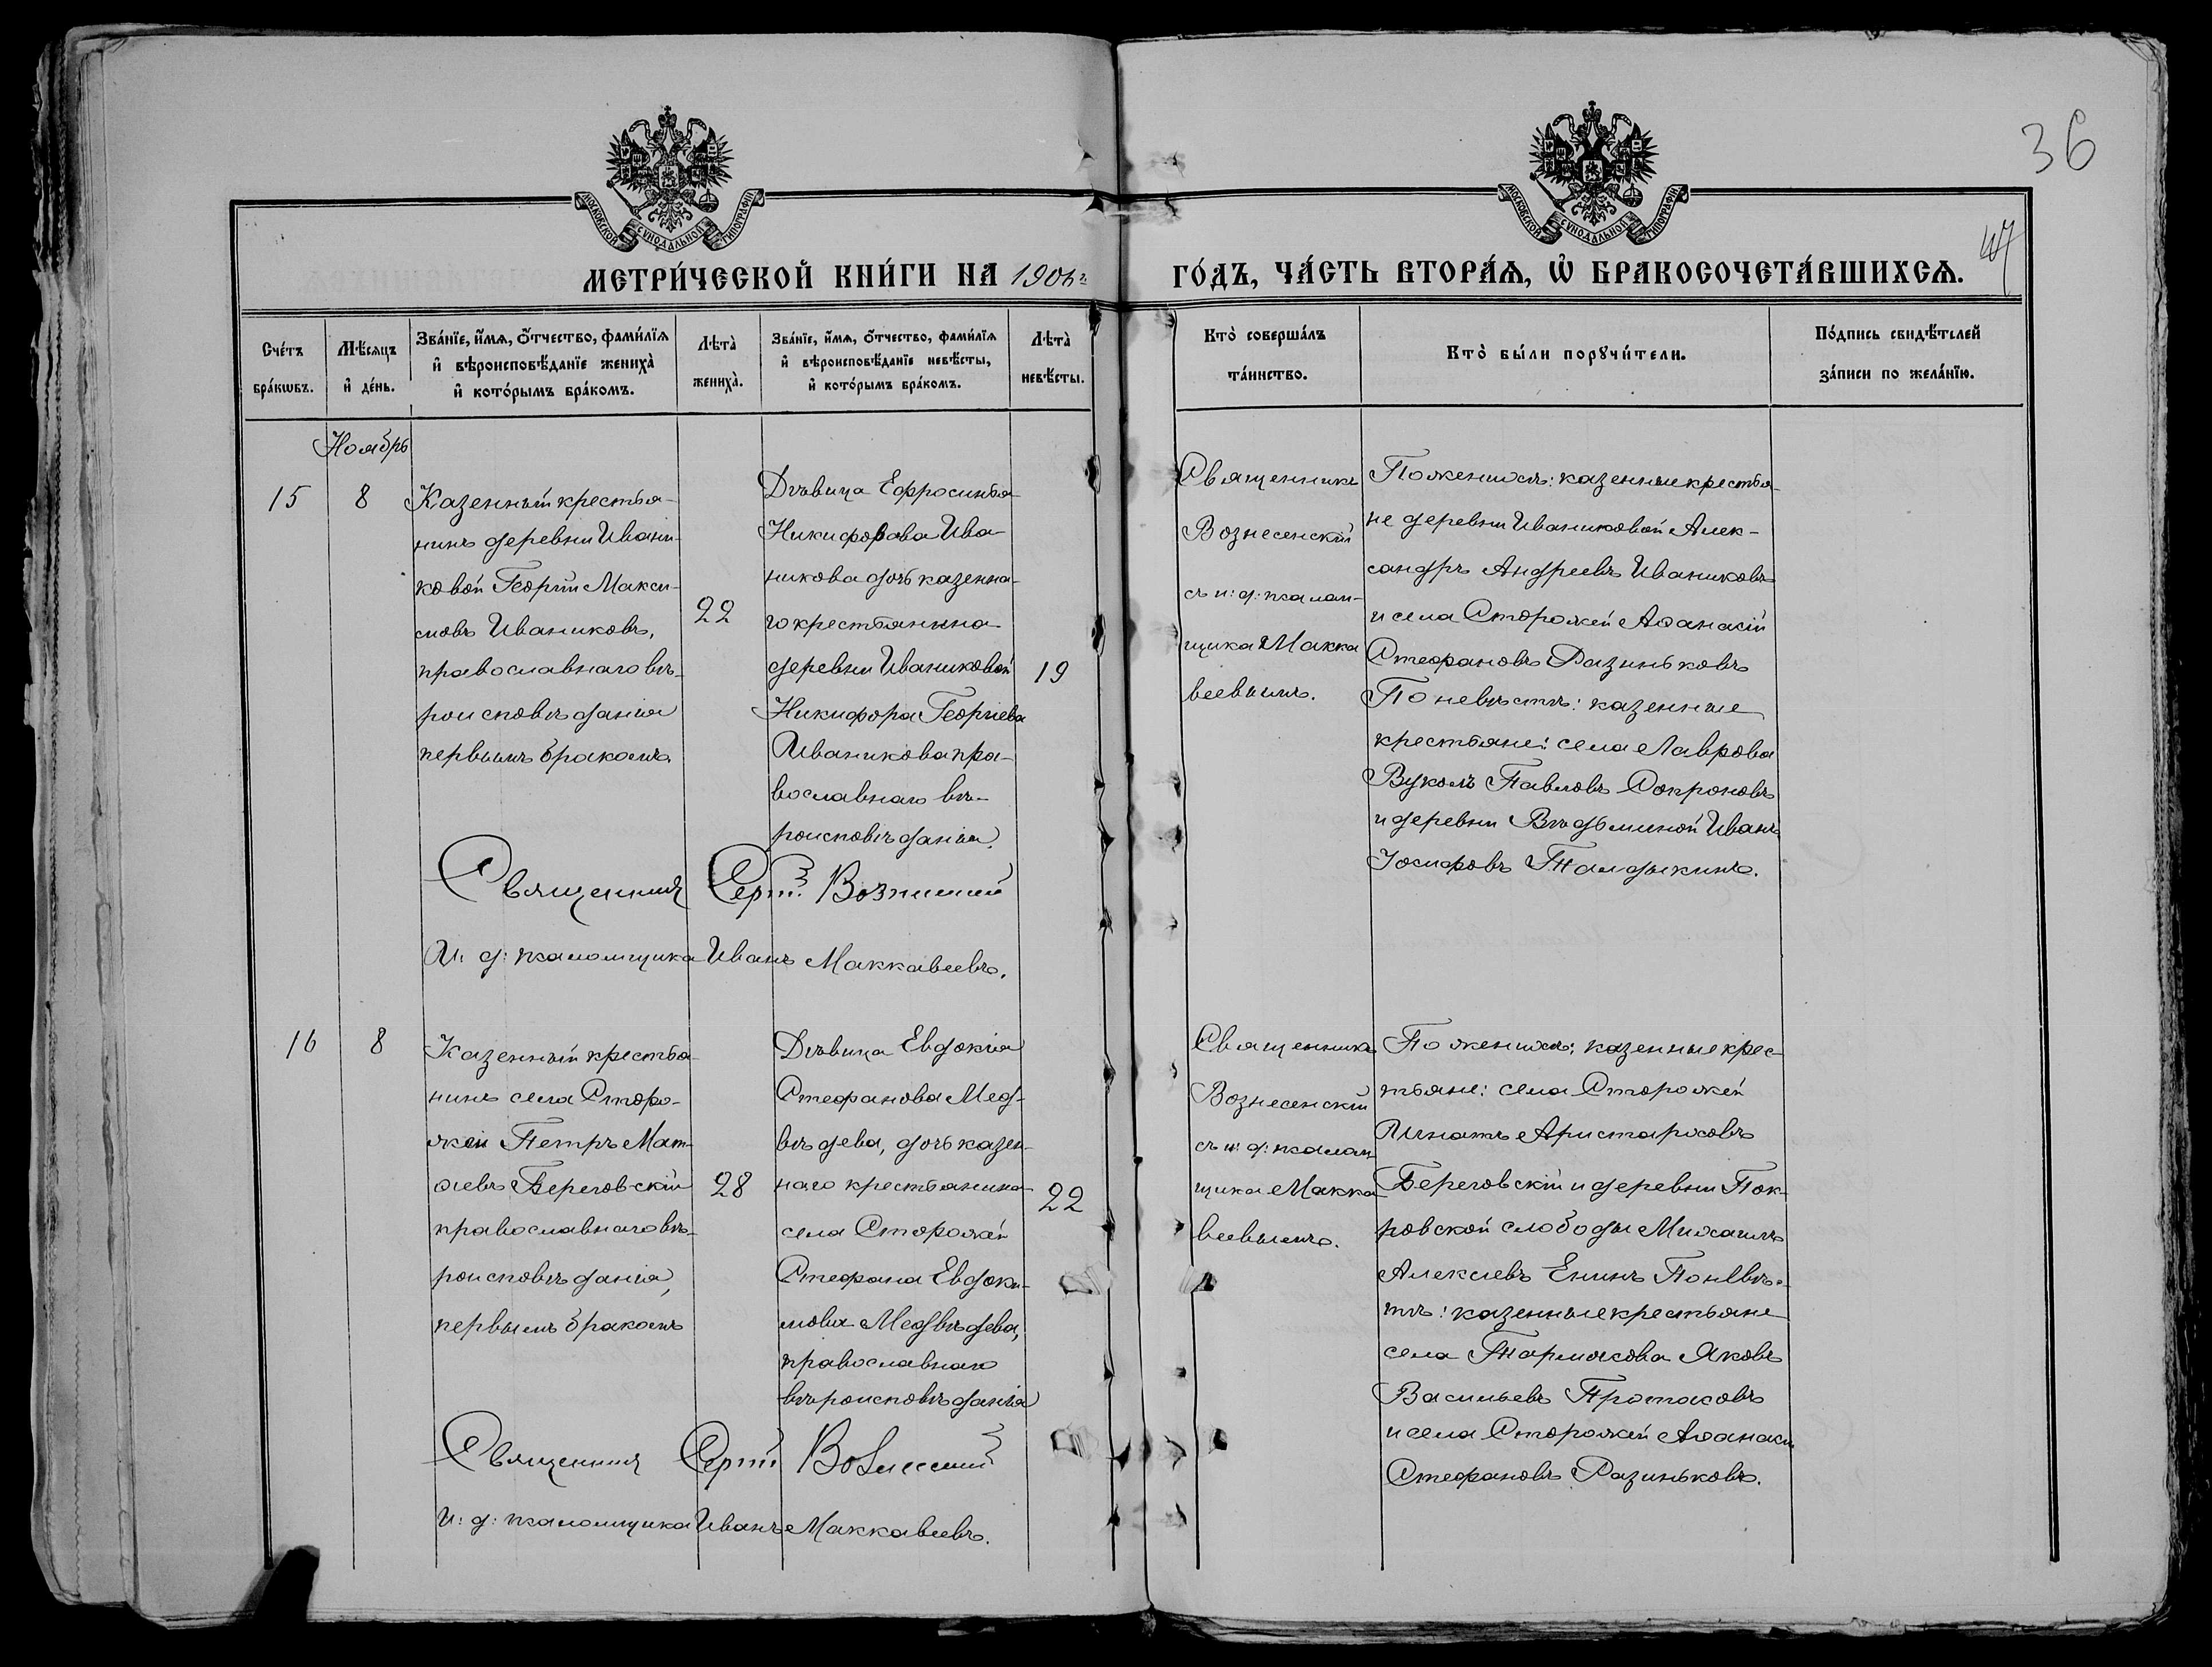 36
МОСКОВСКОЙ СѴНОДАЛЬНОЙ ТИПОГРАФІИ
МОСКОВСКОЙ СѴНОДАЛЬНОЙ ТИПОГРАФІИ
МЕТРИ́ЧЕСКОЙ КНИ́ГИ НА 1906 г.
ГО́ДЪ, ЧА́СТЬ ВТОРА́Ѧ, Ѡ҆ БРАКОСОЧЕТА́ВШИХСѦ.
Сче́тъ бра́кѡвъ.
Мѣ́сѧцъ и҆ де́нь.
Зва́нїе, и҆́мѧ, ѻ҆́тчество, фами́лїѧ
и҆ вѣроисповѣ́данїе жениха̀
и҆ кото́рымъ бра́комъ.
Лѣта̀ жениха̀.
Зва́нїе, и҆́мѧ, ѻ҆́тчество, фами́лїѧ
и҆ вѣроисповѣ́данїе невѣ́сты,
и҆ кото́рымъ бра́комъ.
Лѣта̀ невѣ́сты.
Кто̀ соверша́лъ та́инство.
Кто̀ бы́ли порꙋчи́тели.
По́дпись свидѣ́телей за́писи по жела́нїю.
Ноябрь
15
8
Казенный крестья-
нинъ деревни Ивани-
ковой Георгій Макси-
мовъ Иваниковъ,
православнаго вѣ-
роисповѣданія
первымъ бракомъ.
22
Дѣвица Ефросинья
Никифорова Ива-
никова дочь казенна-
го крестьянина
деревни Иваниковой
Никифора Георгіева
Иваникова пра-
вославнаго вѣ-
роисповѣданія.
19
Священникъ
Вознесенскій
съ и: д: псалом-
щика Макка
веевымъ.
По женихѣ: казенные крестья-
не деревни Иваниковой Алек-
сандръ Андреевъ Иваниковъ
и села Сторожей Аѳанасій
Стефановъ Разиньковъ
По невѣстѣ: казенные
крестьяне: села Лаврова
Вуколъ Павловъ Сопроновъ
и деревни Вѣдьминой Иванъ
Іосифовъ Талдыкинъ.
Священникъ Сергій Вознесенскій
И: д: псаломщика Иванъ Маккавеевъ.
16
8
Казенный крестья-
нинъ села Сторо-
жей Петръ Мат-
ѳіевъ Береговскій
православнаго вѣ-
роисповѣданія,
первымъ бракомъ
28
Дѣвица Евдокія
Стефанова Мед-
вѣдева, дочь казен-
наго крестьянина
села Сторожей
Стефана Евдоки-
мова Медвѣдева,
православнаго
вѣроисповѣданія
22
Священникъ
Вознесенскій
съ и: д: псалом
щика Макка
веевымъ.
По женихѣ: казенные крес-
тьяне: села Сторожей
Игнатъ Аристарховъ
Береговскій и деревни Пок-
ровской слободы Михаилъ
Алексѣевъ Енинъ По невѣс-
тѣ: казенные крестьяне
села Тармасова Яковъ
Васильевъ Протасовъ
и села Сторожей Аѳанасій
Стефановъ Разиньковъ.
Священникъ Сергій Вознесенскій
И: д: псаломщика Иванъ Маккавеевъ.